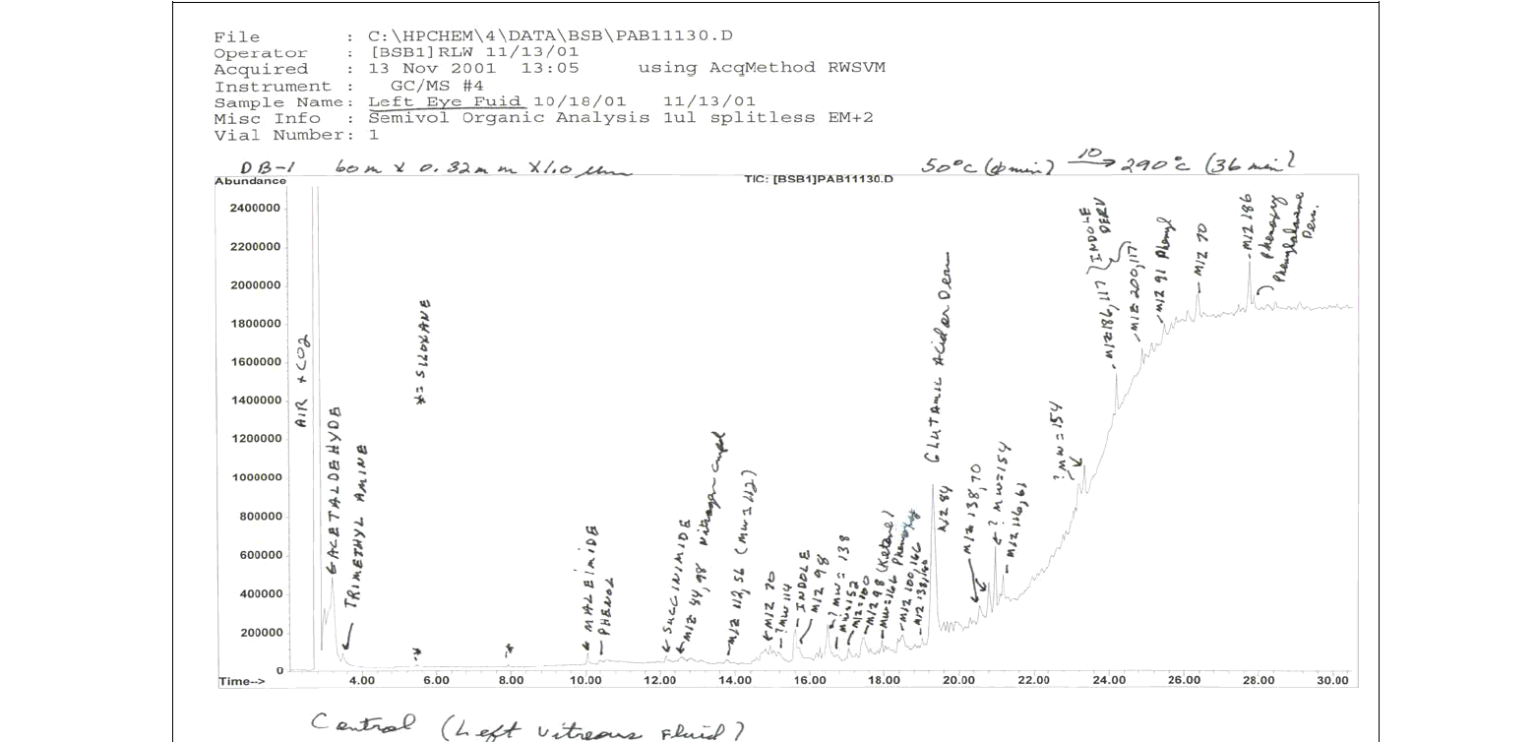 File : C:\HPCHEM\4\DATA\BSB\PAB11130.D
Operator : [BSB1]RLW 11/13/01
Acquired : 13 Nov 2001 13:05 using AcqMethod RWSVM
Instrument : GC/MS #4
Sample Name: Left Eye Fuid 10/18/01 11/13/01
Misc Info : Semivol Organic Analysis 1ul splitless EM+2
Vial Number: 1
DB-1 60m X 0.32mm X 1.0 µm 50°C (0min) 10 → 290°C (36 min)
Abundance
TIC: [BSB1]PAB11130.D
2400000
2200000
2000000
1800000
1600000
1400000
1200000
1000000
800000
600000
400000
200000
0
AIR + CO2
ACETALDEHYDE
TRIMETHYL AMINE
*= SILOXANE
*
*
MALEIMIDE
PHENOL
SUCCINIMIDE
M/Z 44,98 Nitrogen cmpd
M/Z 112,56 (MW=112)
M/Z 70
? MW 114
INDOLE
M/Z 98
? MW = 138
MW=152
M/Z=100
M/Z 98 (Ketone)
MW=166 Phenoxy
M/Z 100,166
M/Z 138,166
GLUTAMIC Acid or Deriv
M/Z 84
M/Z 138,70
? MW=154
M/Z 116,61
? MW=154
M/Z 186,117
INDOLE DERV
M/Z 200,117
M/Z 91 Phenyl
M/Z 70
M/Z 186
Phenoxy
Phenylalanine
Deriv.
Time--> 4.00 6.00 8.00 10.00 12.00 14.00 16.00 18.00 20.00 22.00 24.00 26.00 28.00 30.00
Control (Left Vitreous Fluid)